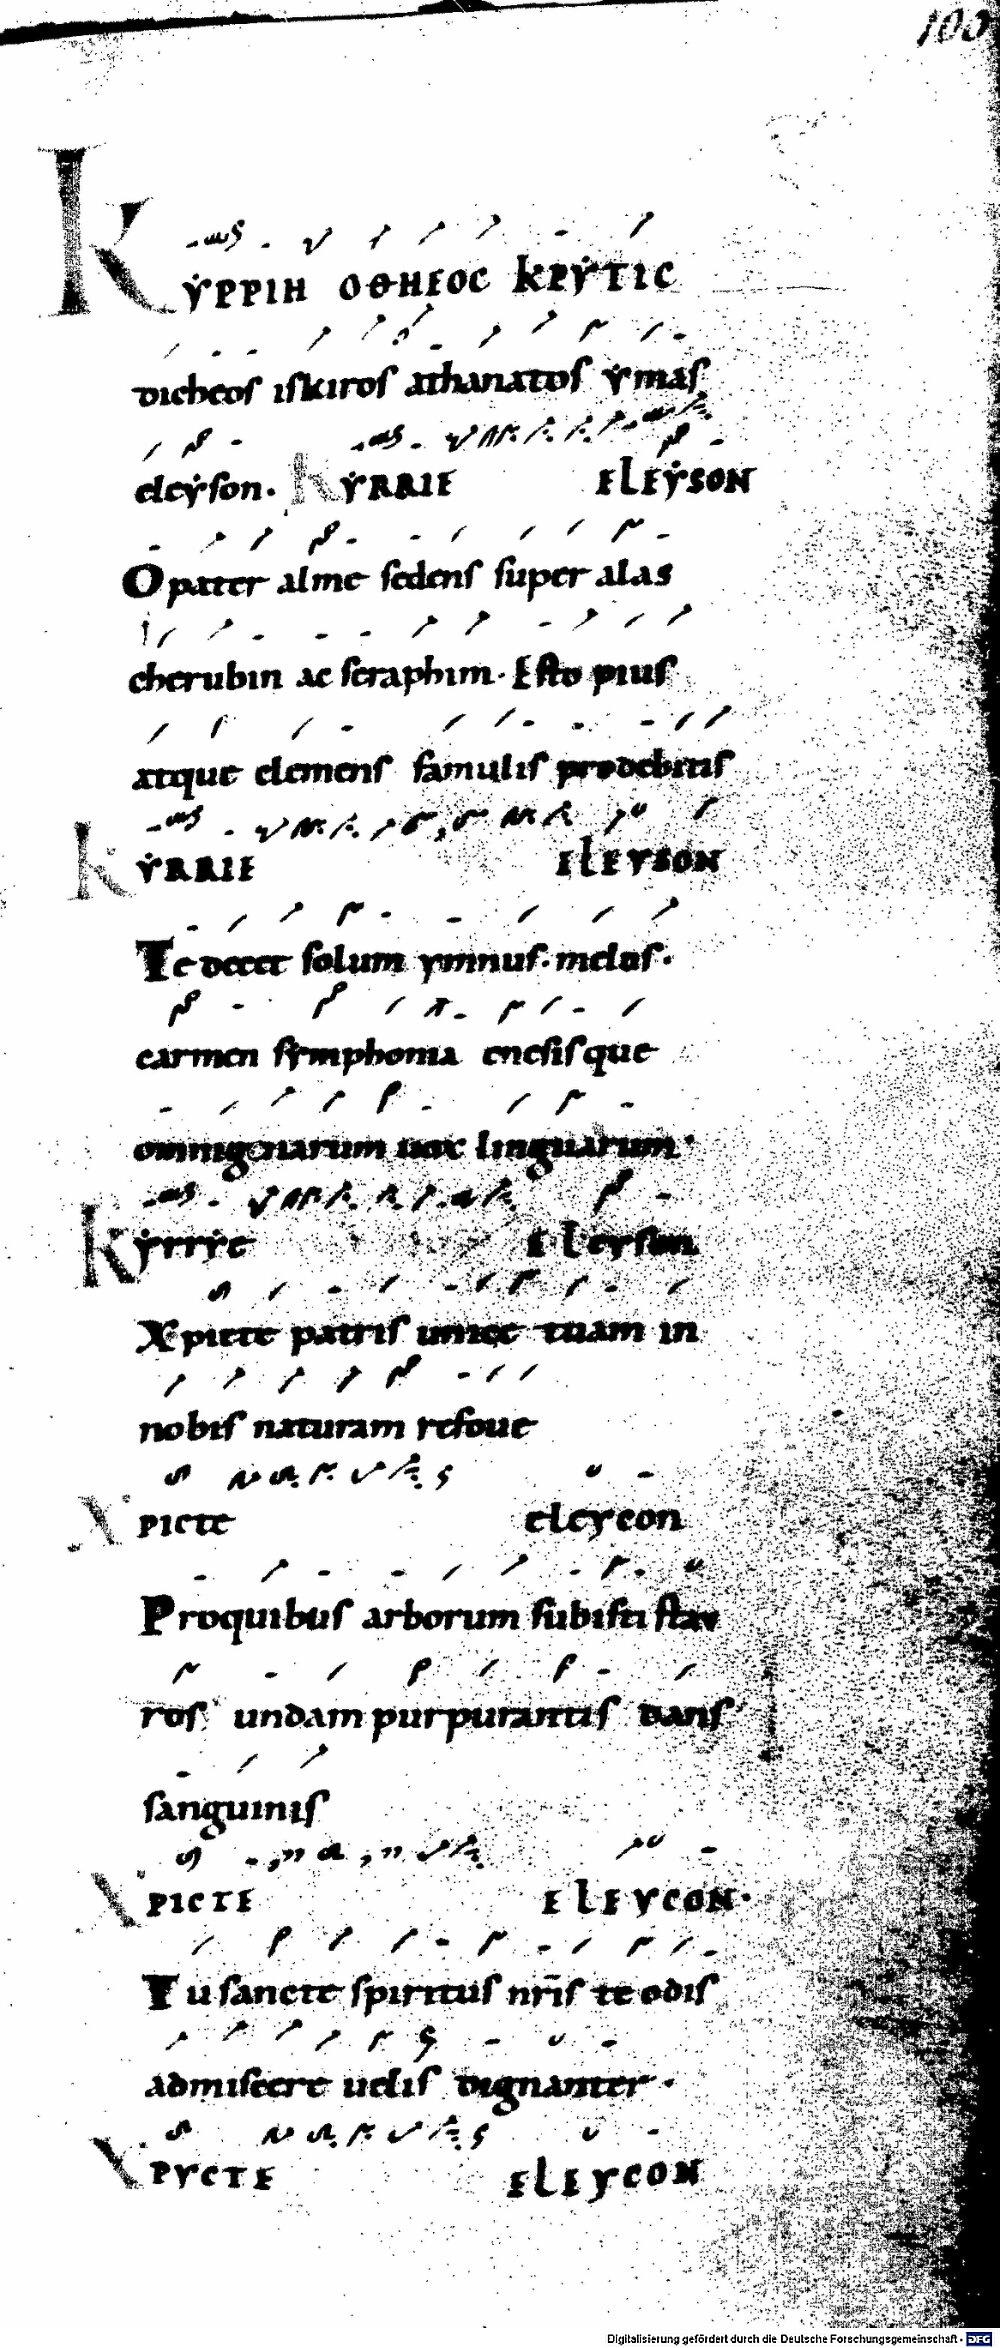 100
KẎPPIH OΘHEOC KPẎTIC
dicheos iskiros athanatos ẏmas
eleẏson. KẎRRIE ELEẎSON
O pater alme sedens super alas
cherubin ac seraphim. Esto pius
atque clemens famulis pro debitis
KẎRRIE ELEYSON
Te decet solum ymnus. melos.
carmen sẏmphonia enesisque
omnigenarum uox linguarum.
Kẏrrẏe Eleyson
Xpicte patris unice tuam in
nobis naturam refoue
Xpicte eleycon
Pro quibus arborum subisti stau
ros undam purpurantis dans
sanguinis
XPICTE ELEYCON.
Tu sancte spiritus nr̄is te odis
admisecre uelis dignanter.
XPYCTE ELEYCON
Digitalisierung gefördert durch die Deutsche Forschungsgemeinschaft - DFG